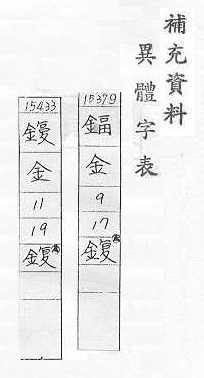 補充資料
異體字表
15379
鍢
金
9
17
鍑
15433
金
11
19
鍑